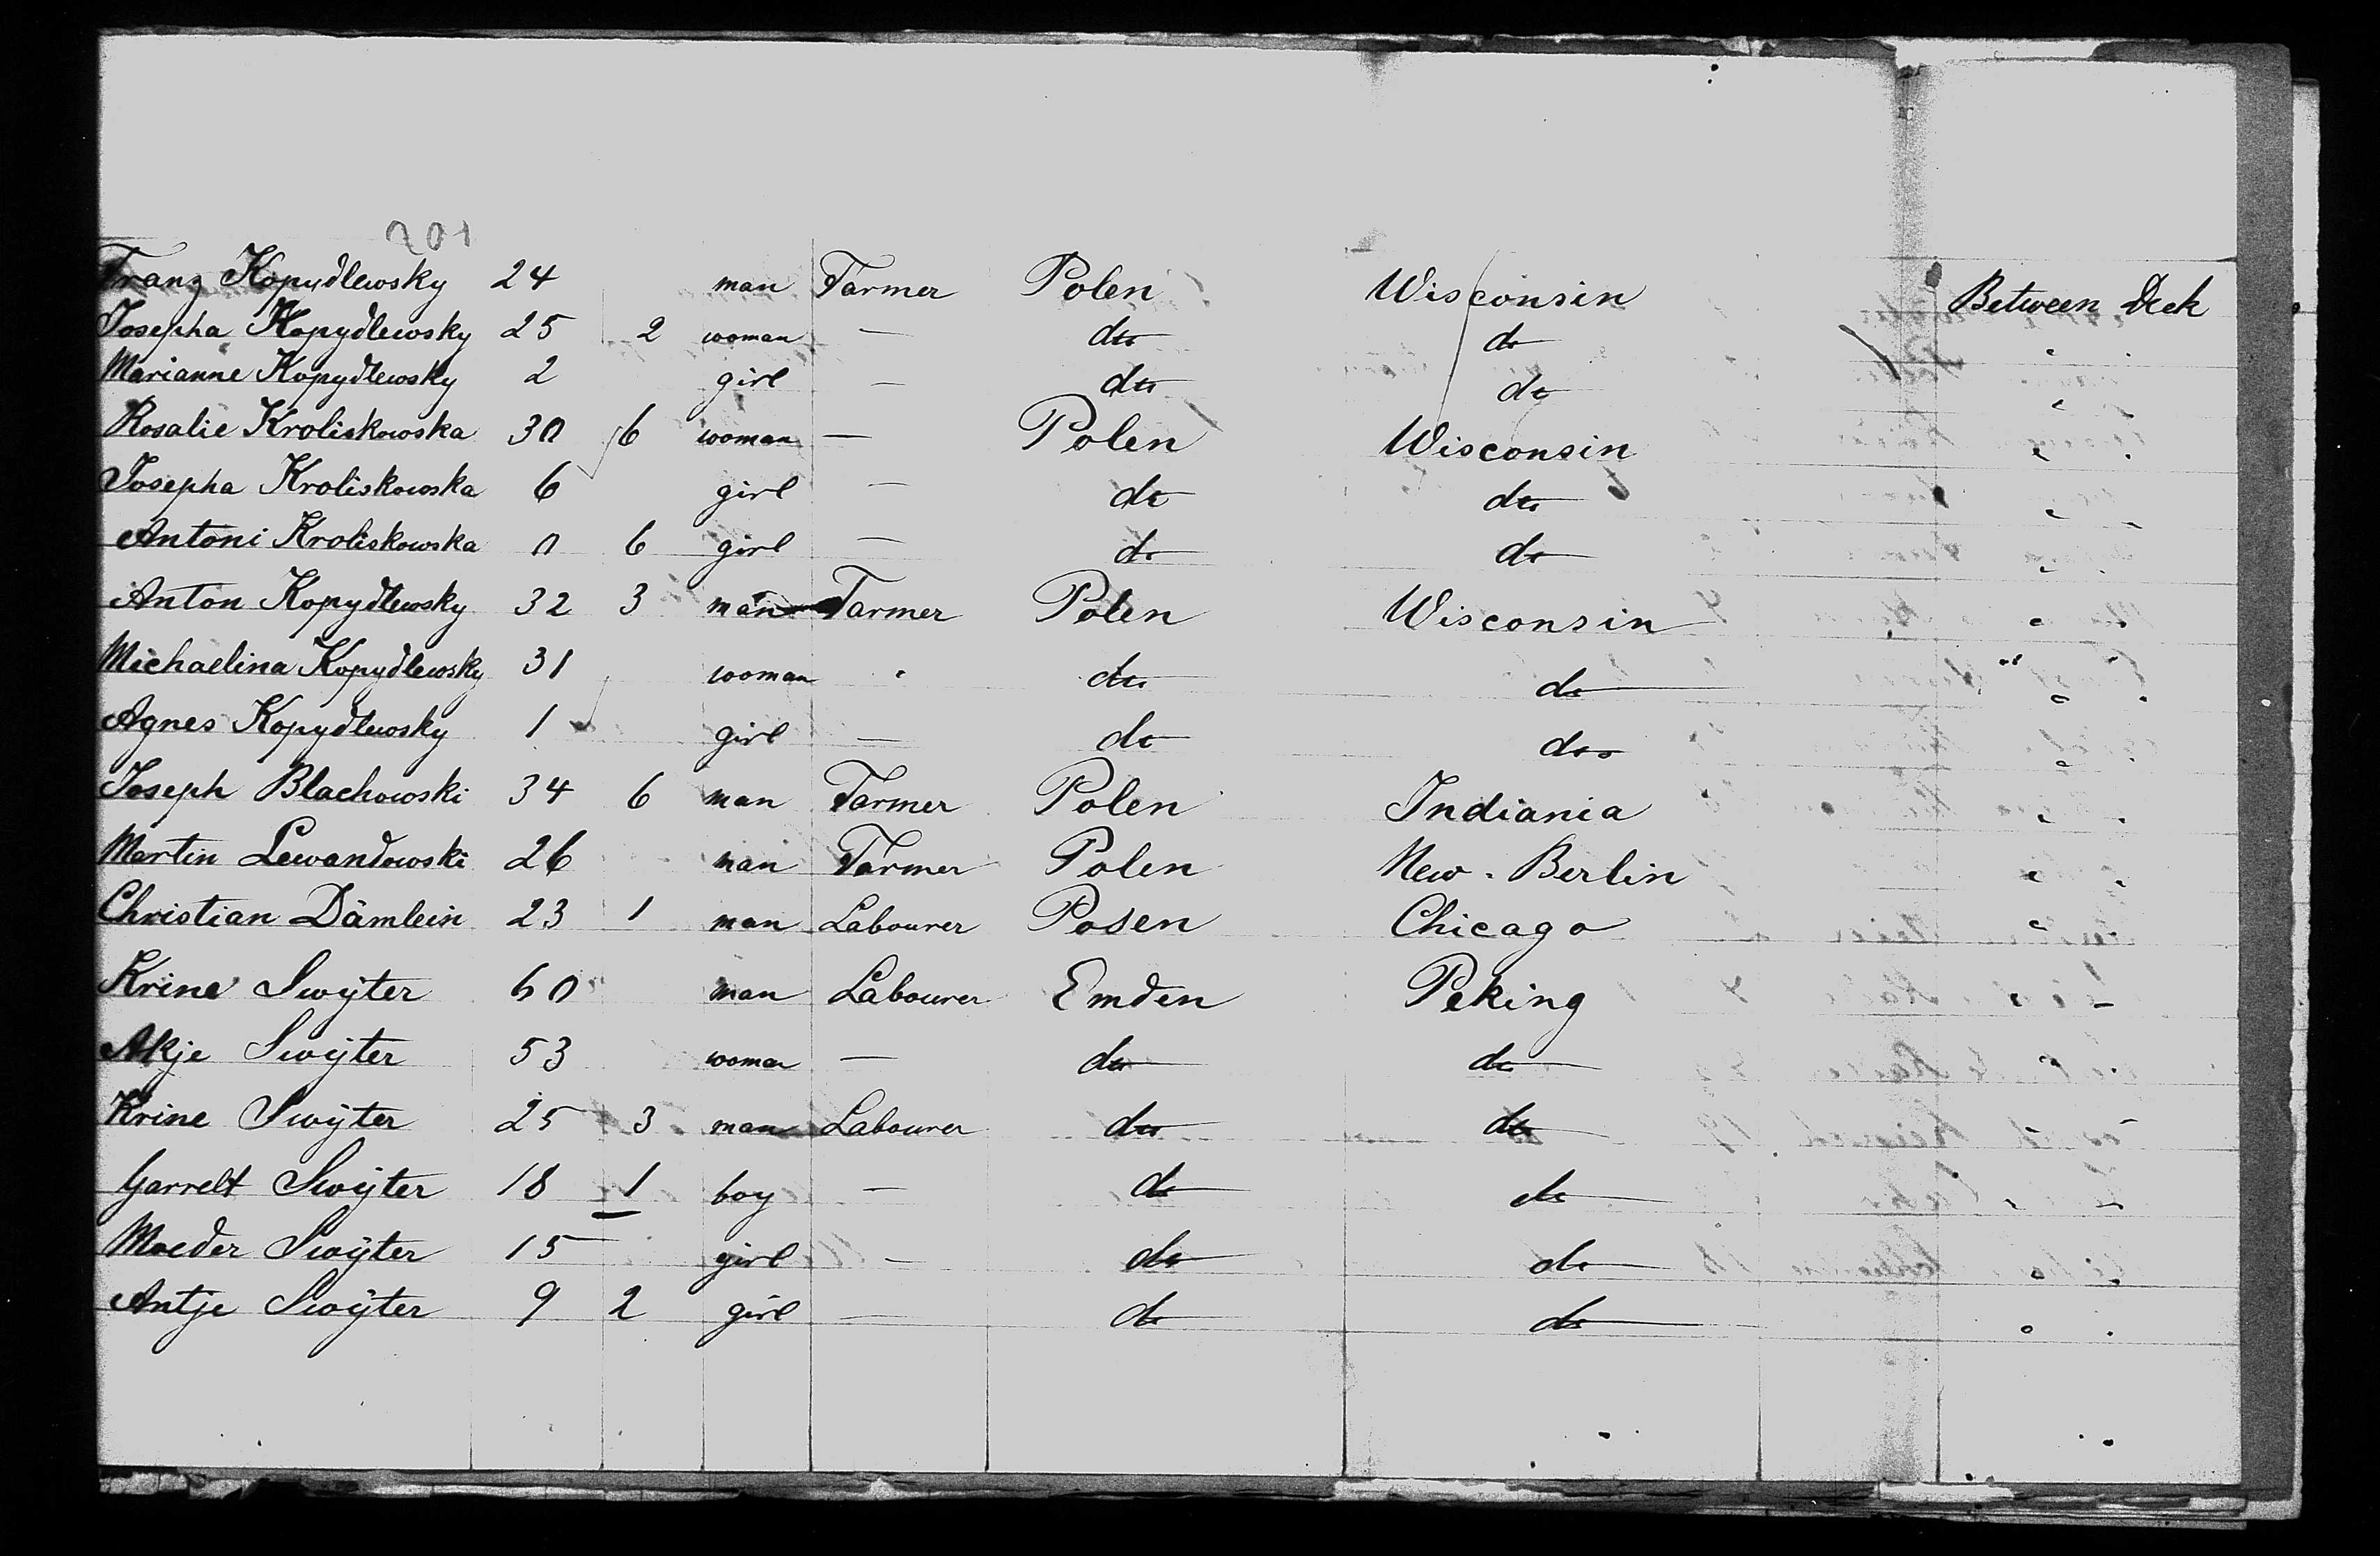 201
Franz Kopydlewsky 24 man Farmer Polen Wisconsin Between Deck
Josepha Kopydlewsky 25 2 woman — do do "
Marianne Kopydlewsky 2 girl — do do "
Rosalie Kroliskowska 30 6 woman — Polen Wisconsin "
Josepha Kroliskowska 6 girl — do do "
Antoni Kroliskowska 0 6 girl — do do "
Anton Kopydlewsky 32 3 man Farmer Polen Wisconsin "
Michaelina Kopydlewsky 31 woman " do do "
Agnes Kopydlewsky 1 girl — do do "
Joseph Blachowski 34 6 man Farmer Polen Indiania "
Martin Lewandowski 26 man Farmer Polen New-Berlin "
Christian Dämlein 23 1 man Labourer Posen Chicago "
Krine Swyter 60 man Labourer Emden Peking "
Akje Swyter 53 woman — do do "
Krine Swyter 25 3 man Labourer do do
Garrelt Swyter 18 1 boy — do do "
Moeder Swyter 15 girl — do do "
Antje Swyter 9 2 girl — do do "